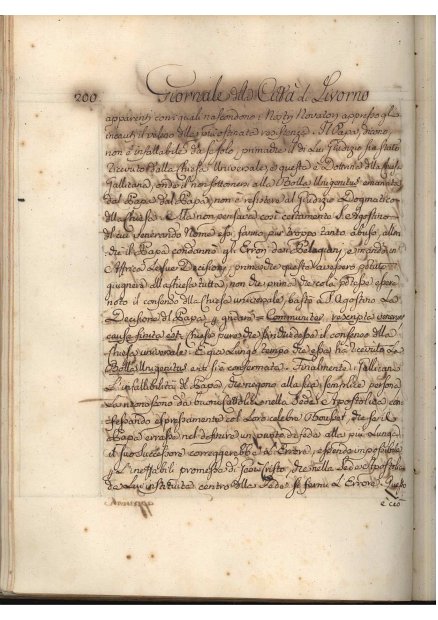 200 Giornale della Città di Livorno
apparenti con i quali nascondono i Nostri Novatori appresso gl'
incauti il veleno della più ostinata resistenza. Il Papa, dicono
non è infallibile da se solo, prima che il di Lui Giudizio sia stato
ricevuto dalla Chiesa Universale, e questa è Dottrina della Chiesa
Gallicana, onde il non sottomersi alla Bolla Unigenitus emanata
dal Papa non è resistere al Giudizio Dogmatico
della Chiesa. Ella non pensava così certamente S. Agostino
del cui Venerando Nome essi fanno pur troppo tanto abuso, allor
che il Papa condannò gli Errori dei Pelagiani, e mandò in
Affrica le sue Decisioni, prima che queste avessero potuto
giugnere alla Chiesa tutta, non che prima che colà potesse essere
noto il consenso della Chiesa universale, bastò a S. Agostino La
Decisione del Papa a gridare = rescripta venerunt
causa finita est
Chiesa universale. E già Lungo tempo che essa ha ricevuta La
Bolla Unigenitus, e si è confermata. Finalmente i Gallicani
L'infallibilità del Papa che negono alla sua semplice persona
La ammettono da buoni Cattolici nella Sede Apostolica con
fessando espressamente col Loro celebre Bossuet, che se il
Papa errasse nel definire un punto di fede alla più Lunga
il suo Successore correggerebbe L'Errore, essendo impossibile
p. L'ineffabili promesse di Gesù Cristo, che nella Sede Apostoli-
ca da Lui instituita centro della Fede si fermi L'Errore. Questo
è ciò